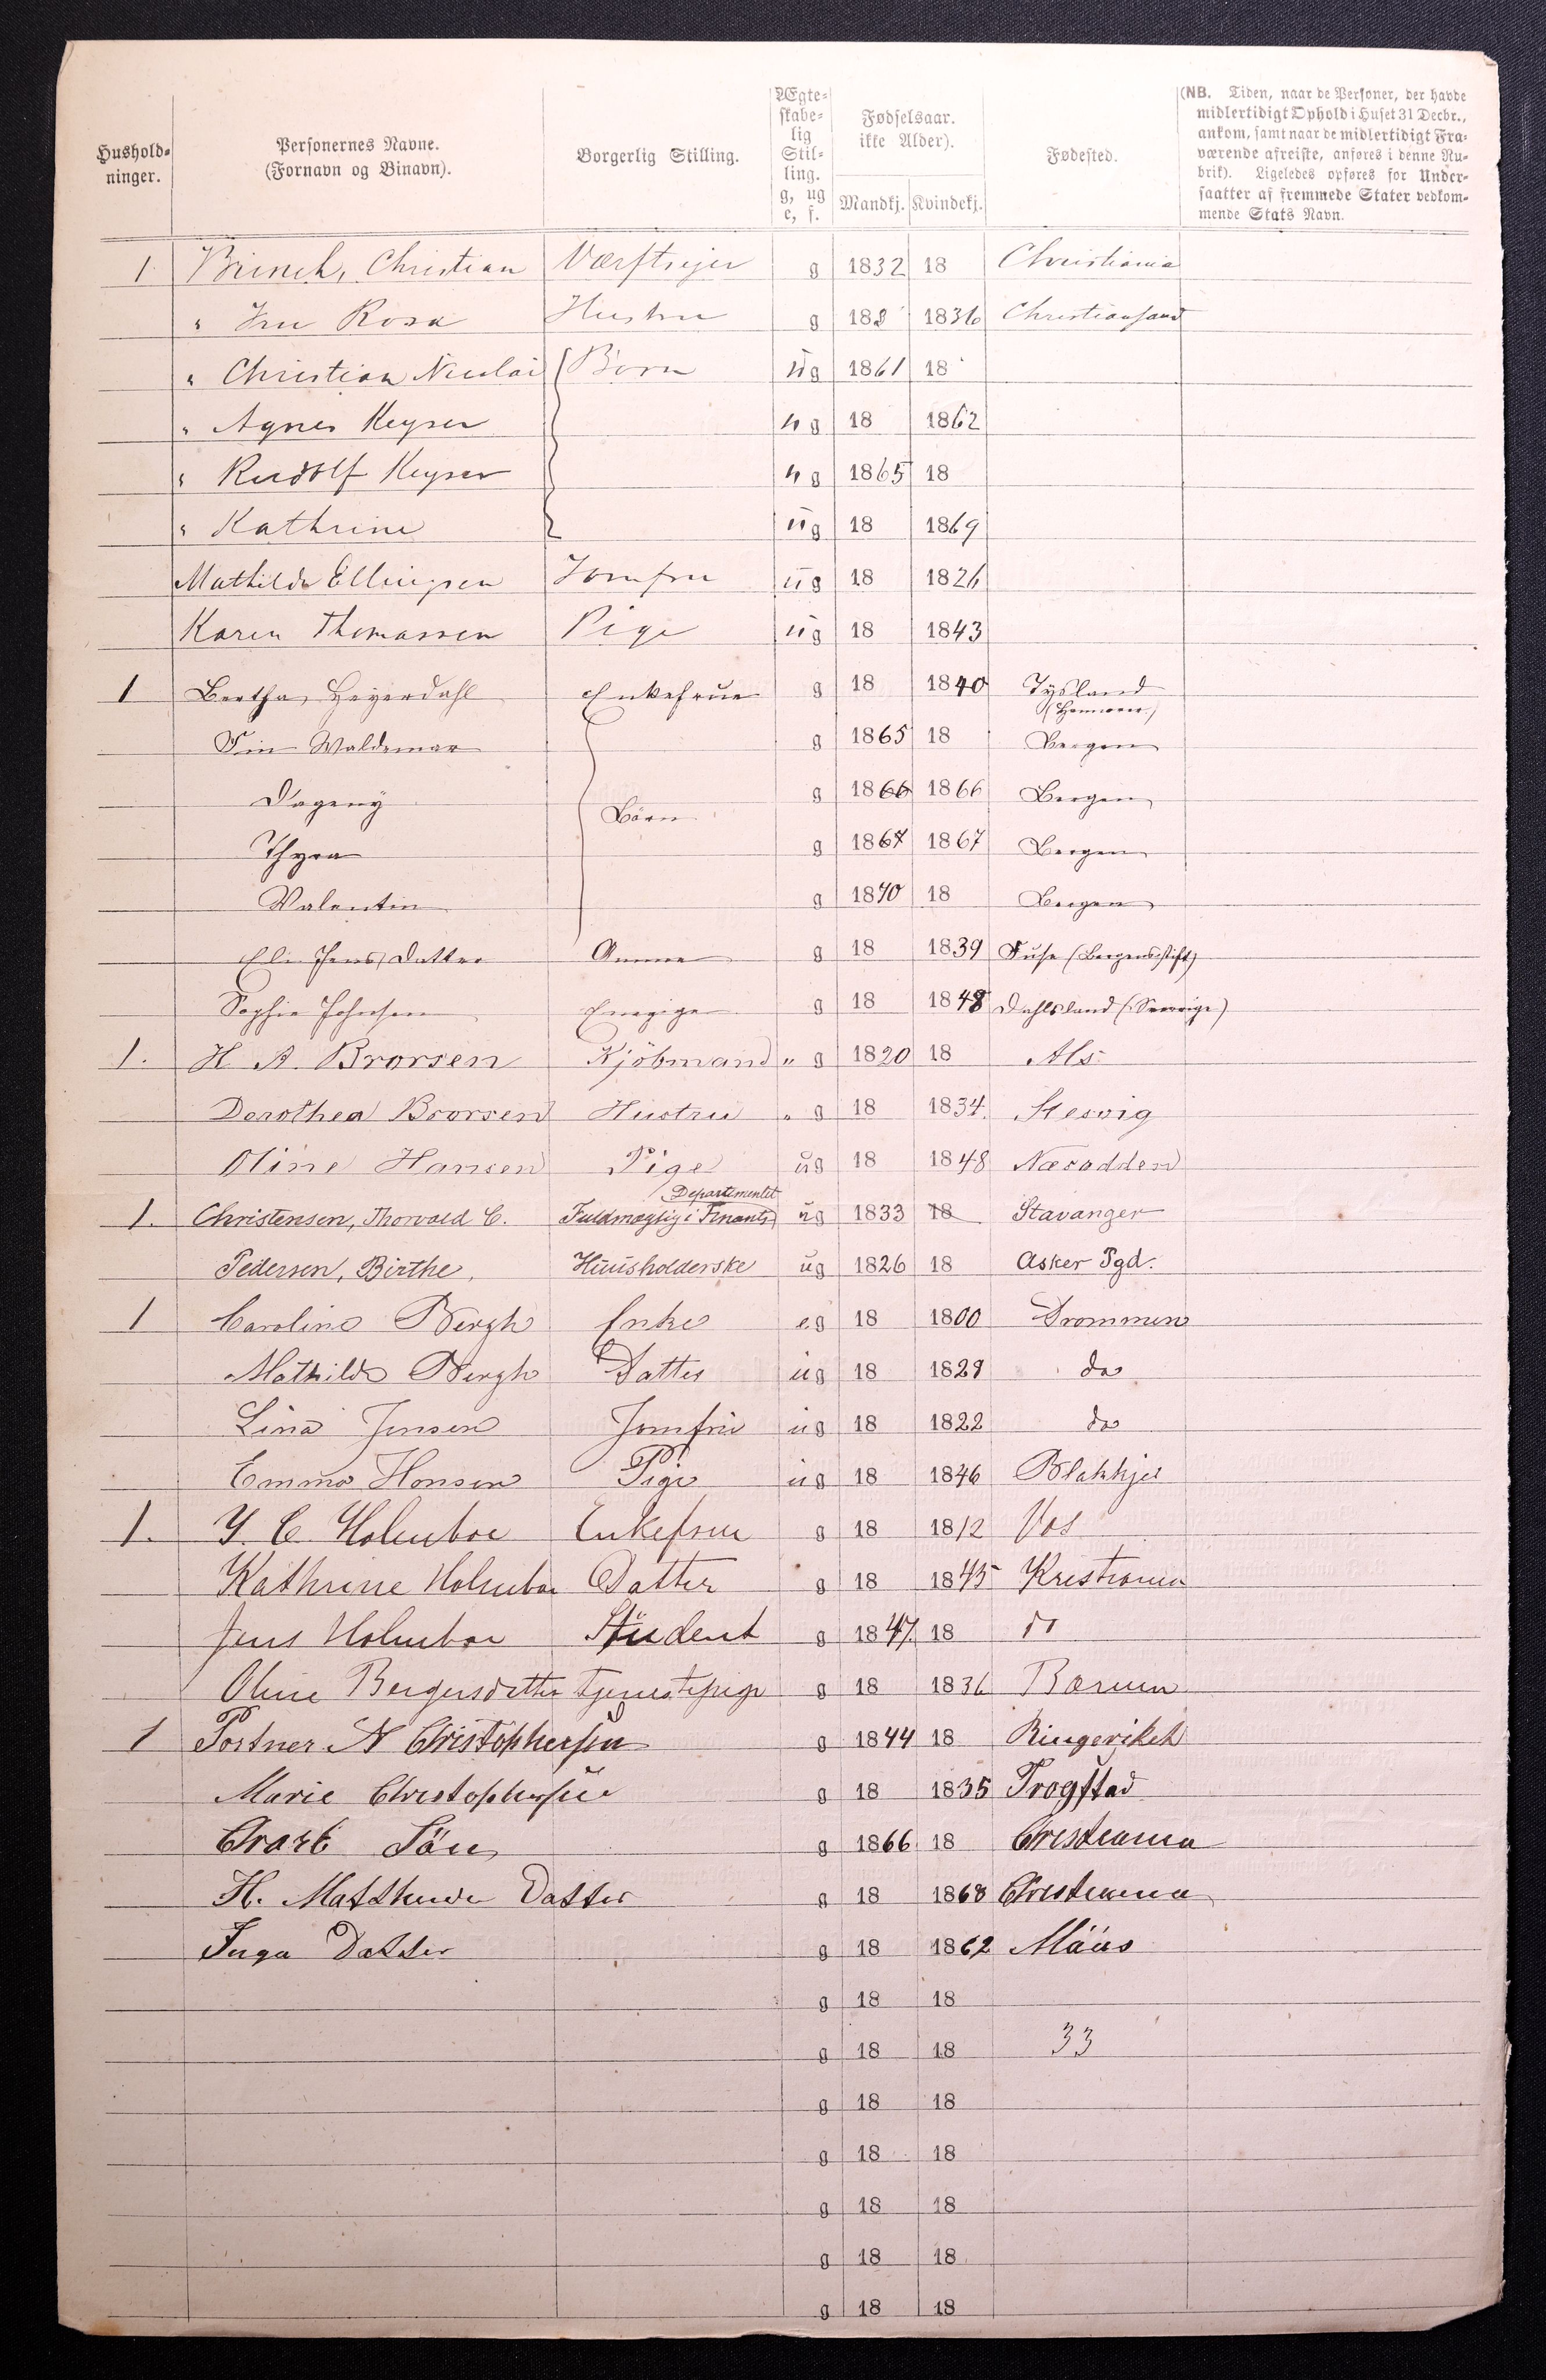 Hushold-
ninger.
Personernes Navne.
(Fornavn og Binavn).
Borgerlig Stilling.
Ægte-
skabe-
lig
Stil-
ling.
g, ug
e, f.
Fødselsaar.
ikke Alder).
Mandkj. Kvindekj.
Fødested.
(NB. Tiden, naar de Personer, der havde
midlertidigt Ophold i Huset 31 Decbr.,
ankom, samt naar de midlertidigt Fra-
værende afreiste, anføres i denne Ru-
brik). Ligeledes opføres for Under-
saatter af fremmede Stater vedkom-
mende Stats Navn.
1 Brinch, Christian Værftsejer g 1832 18 Christiania
" Fru Rosa Hustru g 18 1836 Christiansand
" Christian Nicolai Børn ug 1861 18
" Agnes Keyser ug 18 1862
" Rudolf Keyser ug 1865 18
" Kathrine ug 18 1869
Mathilde Ellingsen Jomfru ug 18 1826
Karen Thomassen Pige ug 18 1843
1 Bertha Heyerdahl Enkefrue g 18 1840 Tysland
(Hannover)
Fin Waldemar g 1865 18 Bergen
Dagny g 1866 1866 Bergen
Børn
Thyra g 1867 1867 Bergen
Valentin g 1870 18 Bergen
Eli Jens Datter Amme g 18 1839 Fuse (Bergensstift)
Sophie Johnsen g 18 1848 Dahlsland (Sverrige)
1. H. A. Brorsen Kjöbmand " g 1820 18 Als
Dorothea Brorsen Hustru " g 18 1834. Slesvig
Oline Hansen Pige ug 18 1848 Næsodden
Departementet
1. Christensen, Thorvald C. Fuldmægtig i Finants ug 1833 18 Stavanger
Pedersen, Birthe, Huusholderske ug 1826 18 Asker Pgd.
1 Caroline Bergh Enke eg 18 1800 Drammen
Mathilde Bergh Datter ug 18 1829 do
Lina Jensen Jomfru ug 18 1822 do
Emma Hansen Pige ug 18 1846 Blakkjer
1. Y. C. Holmboe Enkefrue g 18 1812 Vos
Kathrine Holmboe Datter g 18 1845 Kristiania
Jens Holmboe Student g 1847. 18 do
Oline Bergersdatter Tjenestepige g 18 1836 Bærum
1 Portner N Christophersen g 1844 18 Ringeriket
Marie Christophersen g 18 1835 Trogstad
Søn g 1866 18 Christiania
H. Mathilde Datter g 18 1868 Christiania
Inga Datter g 18 1862
g 18 18
g 18 18 33
g 18 18
g 18 18
g 18 18
g 18 18
g 18 18